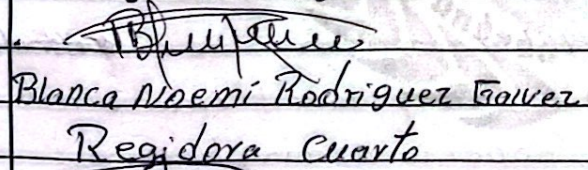 Blanca Noemí Rodriguez Galvez
Regidora Cuarto